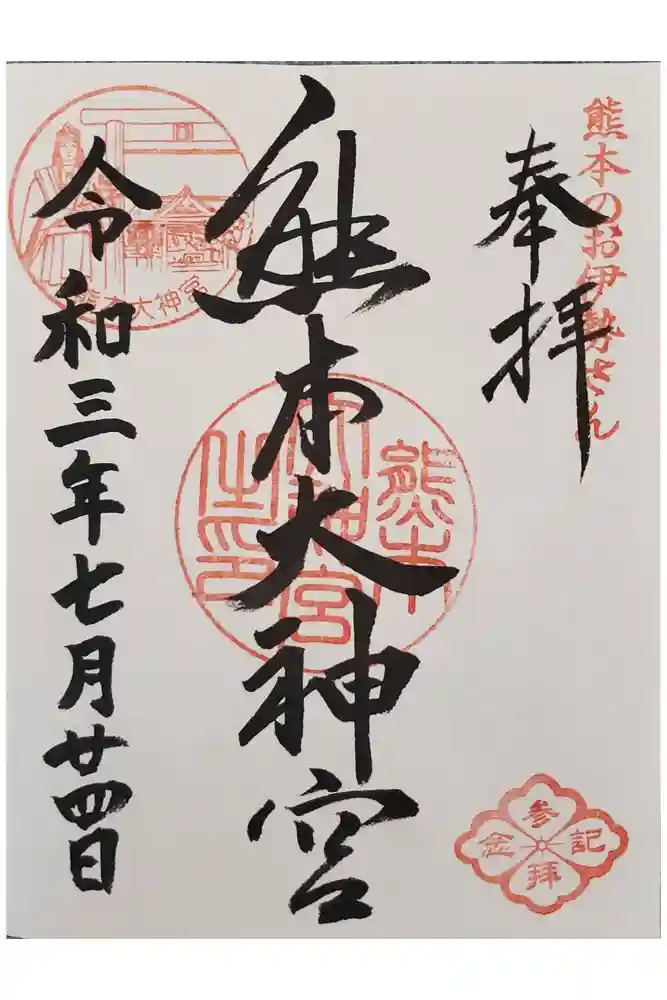 熊本のお伊勢さん
奉拝
熊本大神宮
熊本大神宮之印
令和三年七月廿四日
熊本大神宮
参拝記念